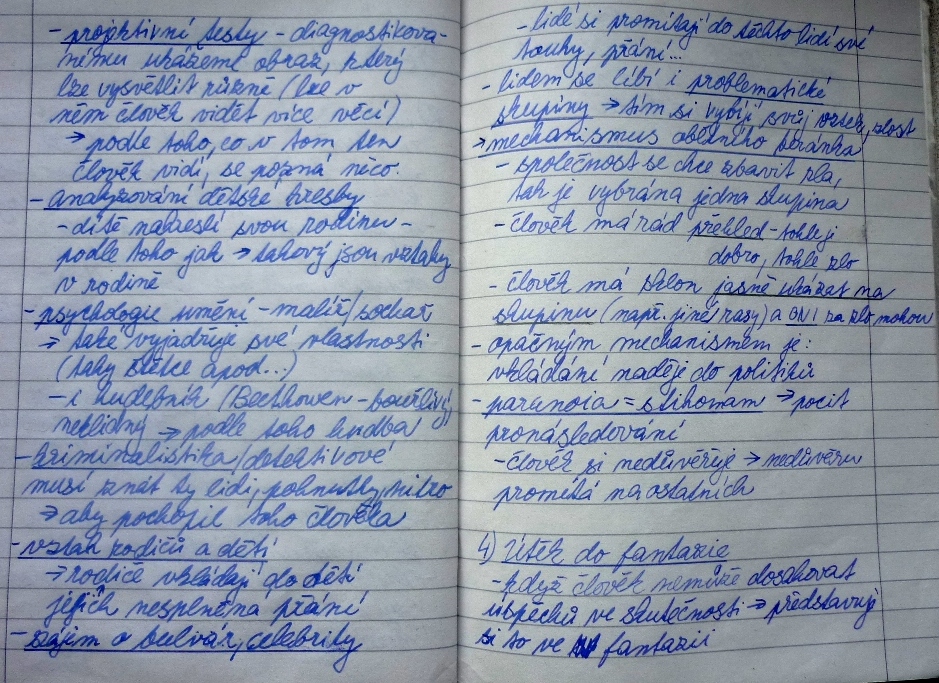 - projektivní testy - diagnostikova-
nému ukážeme obraz, který
lze vysvětlit různě (lze v
něm člověk vidět více věcí)
→ podle toho, co v tom ten
člověk vidí, se pozná něco.
- analyzování dětské kresby
- dítě nakreslí svou rodinu -
podle toho jak → takový jsou vztahy
v rodině
- psychologie umění - malíř/sochař
→ také vyjadřuje své vlastnosti
(tahy štětce apod...)
- i hudebník (Beethowen - bouřlivý,
neklidný → podle toho hudba
- kriminalistika/detektivové
musí znát ty lidi, pohnutky, nitro
→ aby pochopil toho člověka
- vztah rodičů a dětí
→ rodiče vkládají do dětí
jejich nesplněna přání
- zájem o bulvár, celebrity
- lidé si promítají do těchto lidí své
touhy, přání...
- lidem se líbí i problematické
skupiny → tím si vybíjí svůj vztek, zlost
→ mechanismus obětního beránka
- společnost se chce zbavit zla,
tak je vybrána jedna skupina
- člověk má rád přehled - tohle je
dobro, tohle zlo
- člověk má sklon jasně ukázat na
skupinu (např. jiné rasy) a ONI za zlo mohou
- opačným mechanismem je:
vkládání naděje do politiků
- paranoia = stihomam → pocit
pronásledování
- člověk si nedůvěřuje → nedůvěru
promítá na ostatních
4) Útěk do fantazie
- když člověk nemůže dosahovat
úspěchů ve skutečnosti → představuje
si to ve fantazii